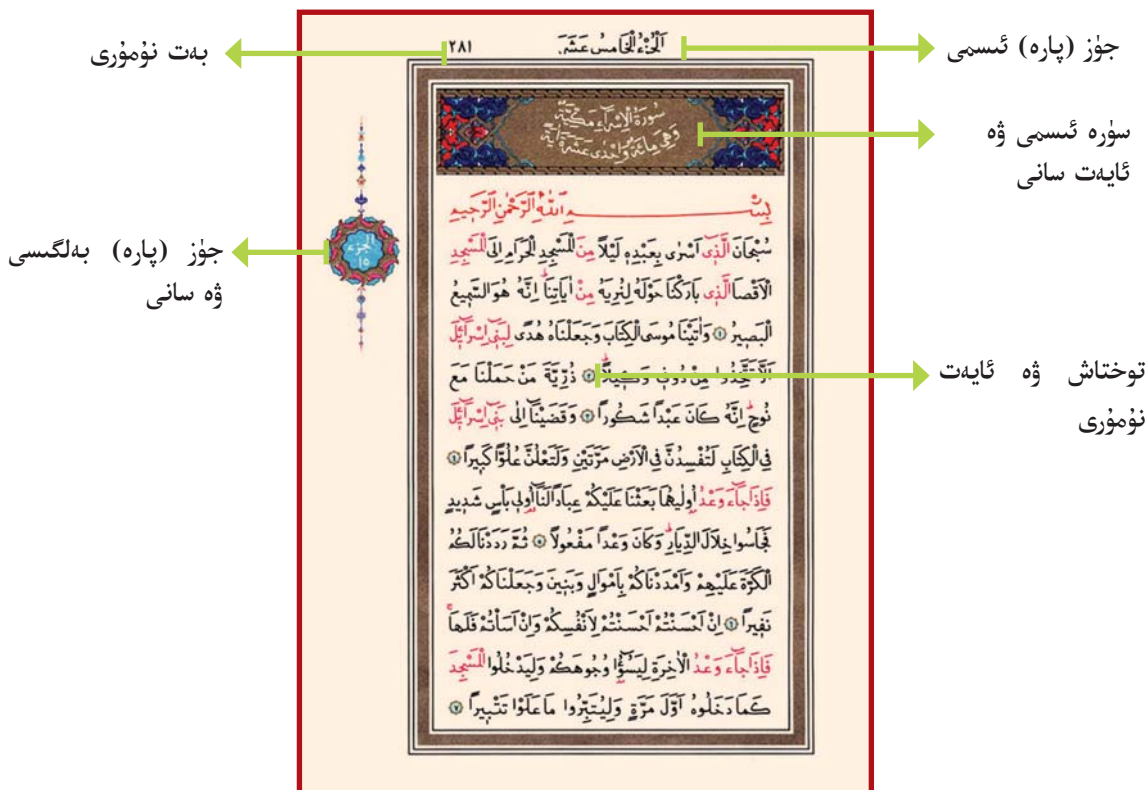 جۈز (پارە) ئىسمى
اَلْجُزْءُ الْخَامِسُ عَشَرَ
٢٨١
بەت نۇمۇرى
سۈرە ئىسمى ۋە
ئايەت سانى
سُورَةُ الْاِسْرَٓاءِ مَكِّيَّةٌ
وَهِيَ مِائَةٌ وَاِحْدٰى عَشْرَةَ اٰيَةً
بِسْمِ اللّٰهِ الرَّحْمٰنِ الرَّحِيمِ
سُبْحَانَ الَّذِٓى اَسْرٰى بِعَبْدِهِ لَيْلاً مِنَ الْمَسْجِدِ الْحَرَامِ اِلَى الْمَسْجِدِ
الْاَقْصَا الَّذِى بَارَكْنَا حَوْلَهُ لِنُرِيَهُ مِنْ اٰيَاتِنَاۜ اِنَّهُ هُوَ السَّمِيعُ
الْبَصِيرُ ﴿١﴾ وَاٰتَيْنَا مُوسَى الْكِتَابَ وَجَعَلْنَاهُ هُدًى لِبَنِٓى اِسْرَٓائِلَ
اَلَّا تَتَّخِذُوا مِنْ دُونِى وَكِيلاًۜ ﴿٢﴾ ذُرِّيَّةَ مَنْ حَمَلْنَا مَعَ
نُوحٍۜ اِنَّهُ كَانَ عَبْداً شَكُوراً ﴿٣﴾ وَقَضَيْنَٓا اِلٰى بَنِٓى اِسْرَٓائِلَ
فِى الْكِتَابِ لَتُفْسِدُنَّ فِى الْاَرْضِ مَرَّتَيْنِ وَلَتَعْلُنَّ عُلُوّاً كَبِيراً ﴿٤﴾
فَاِذَا جَٓاءَ وَعْدُ اُولٰيهُمَا بَعَثْنَا عَلَيْكُمْ عِبَاداً لَنَٓا اُولِى بَأْسٍ شَدِيدٍ
فَجَاسُوا خِلَالَ الدِّيَارِۜ وَكَانَ وَعْداً مَفْعُولاً ﴿٥﴾ ثُمَّ رَدَدْنَا لَكُمُ
الْكَرَّةَ عَلَيْهِمْ وَاَمْدَدْنَاكُمْ بِاَمْوَالٍ وَبَنِينَ وَجَعَلْنَاكُمْ اَكْثَرَ
نَفِيراً ﴿٦﴾ اِنْ اَحْسَنْتُمْ اَحْسَنْتُمْ لِاَنْفُسِكُمْ وَاِنْ اَسَأْتُمْ فَلَهَاۜ
فَاِذَا جَٓاءَ وَعْدُ الْاٰخِرَةِ لِيَسُٓؤُا وُجُوهَكُمْ وَلِيَدْخُلُوا الْمَسْجِدَ
كَمَا دَخَلُوهُ اَوَّلَ مَرَّةٍ وَلِيُتَبِّرُوا مَا عَلَوْا تَتْبِيراً ﴿٧﴾
الجزء
١٥
جۈز (پارە) بەلگىسى
ۋە سانى
توختاش ۋە ئايەت
نۇمۇرى